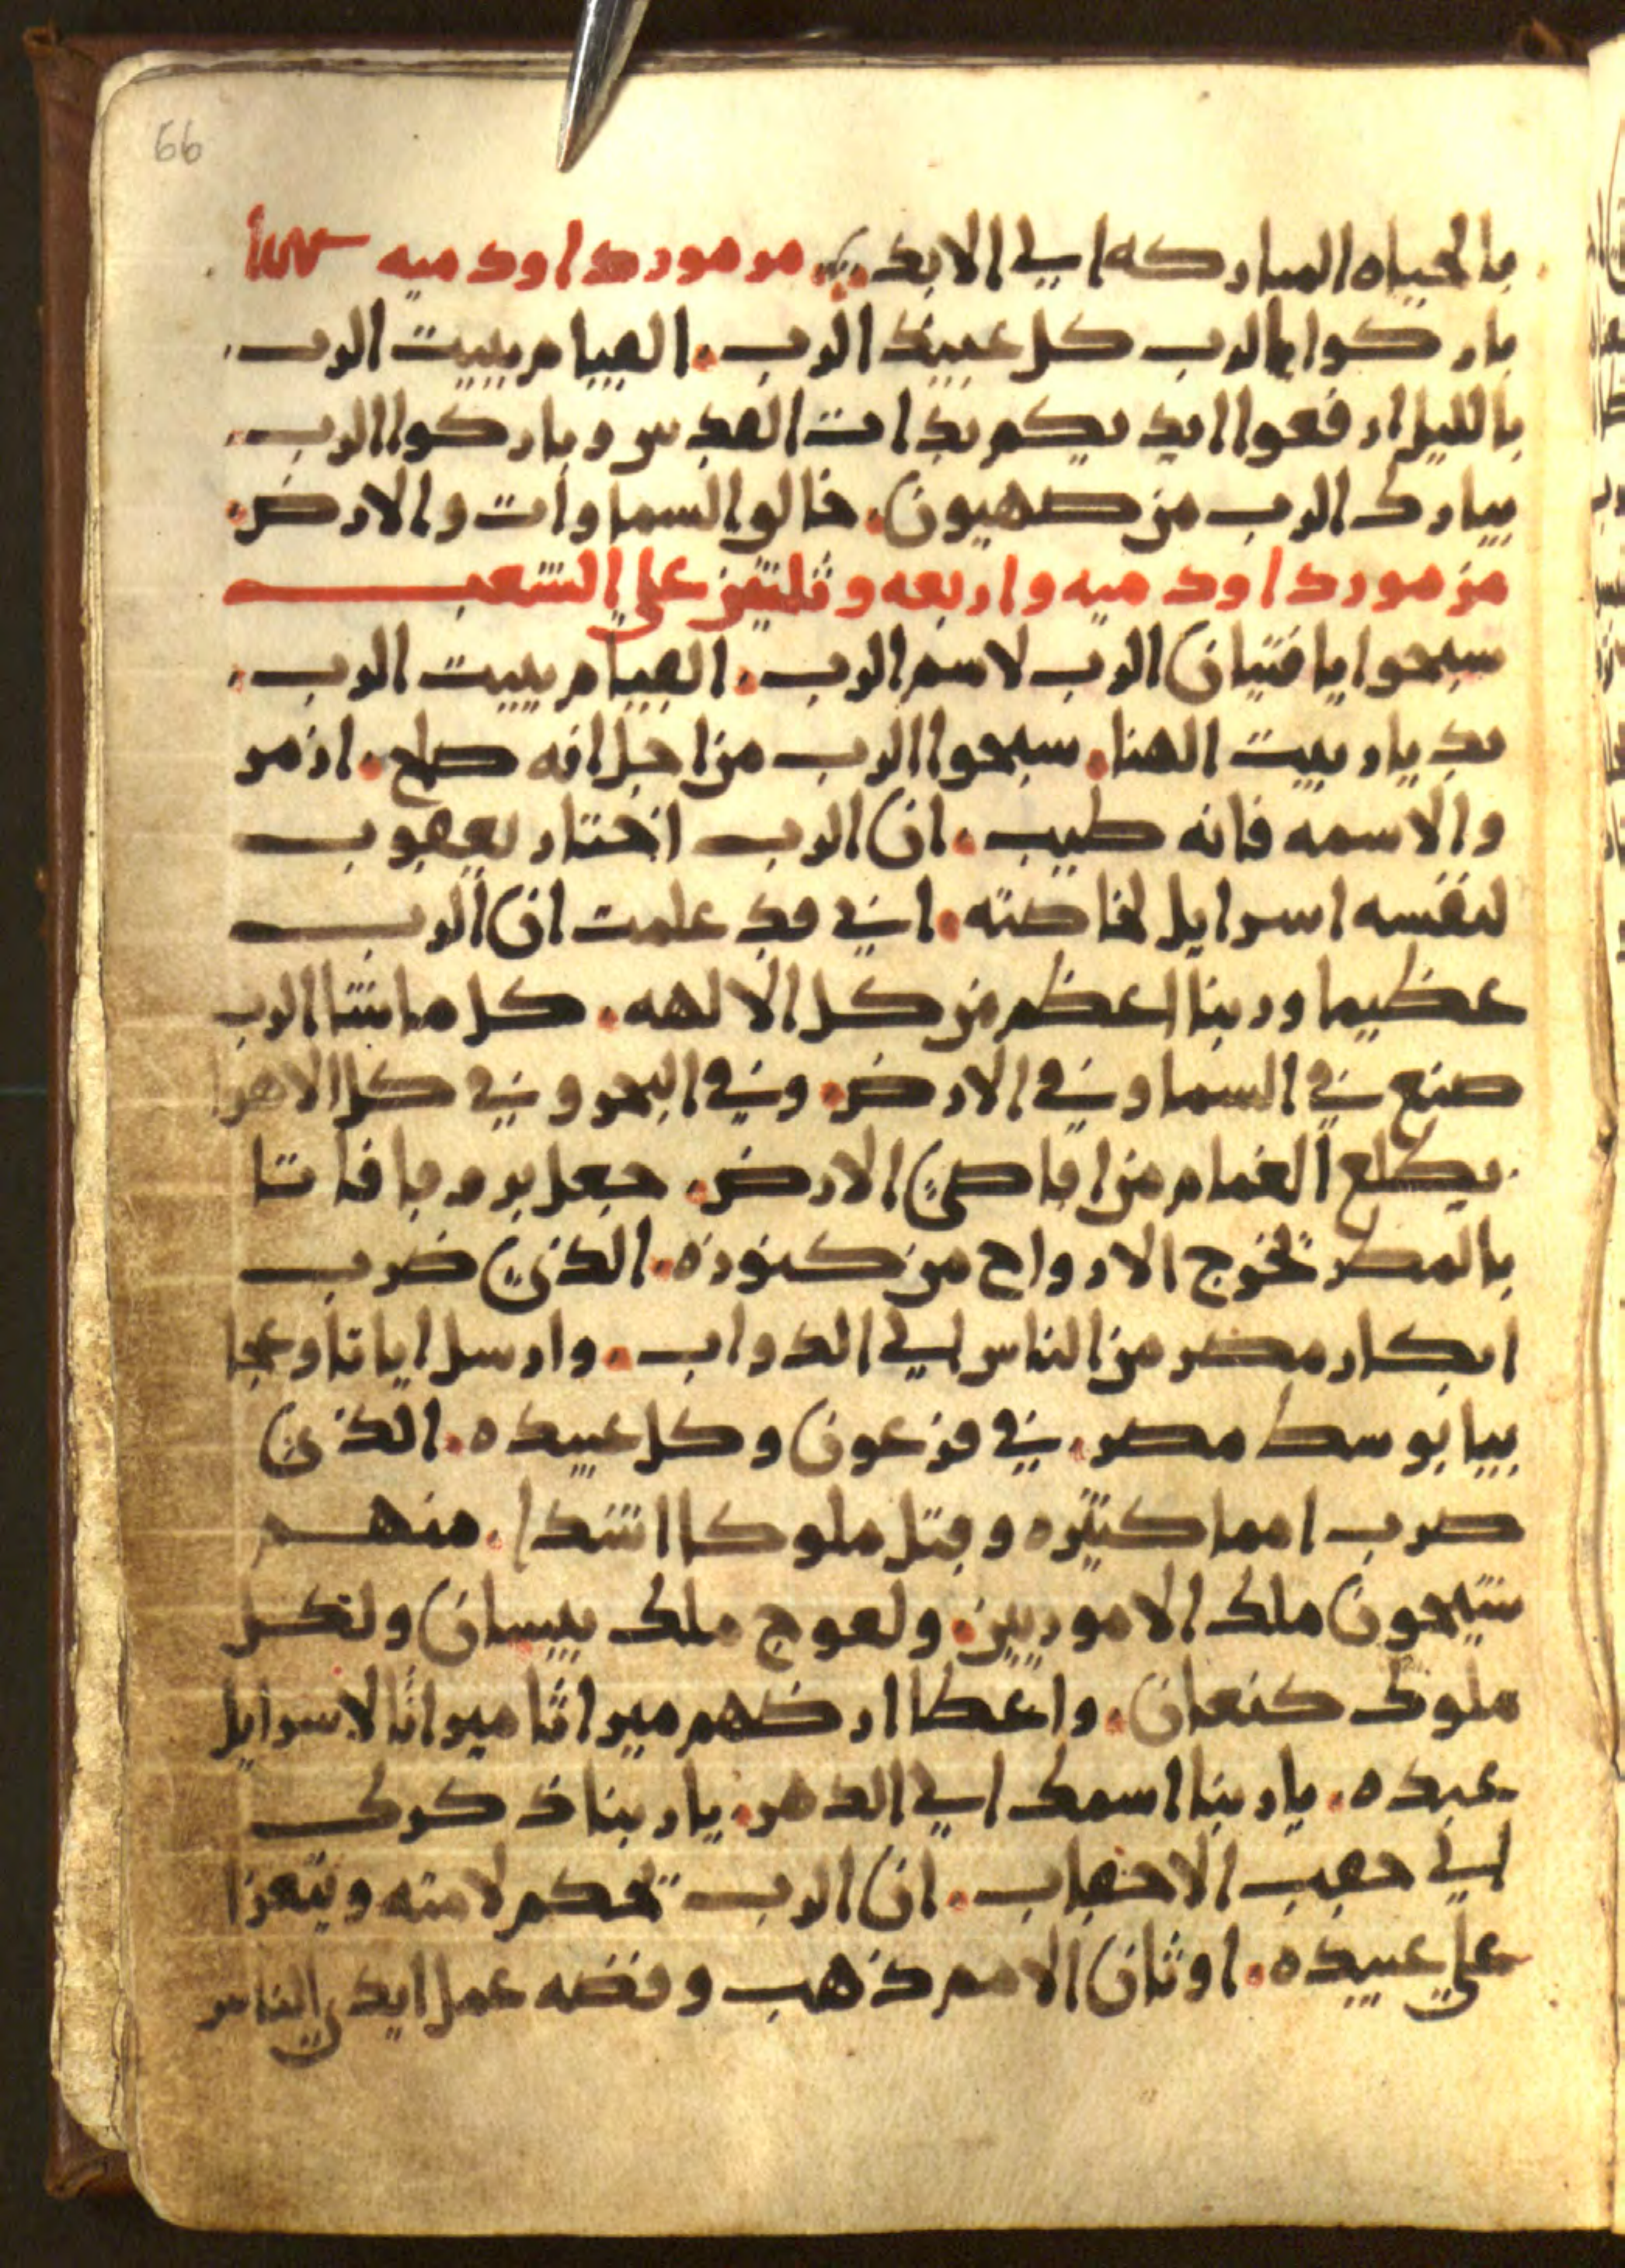 66
بالحياه المباركه الي الابد ؞ مزمور داود ميه
باركوا الرب كل عبيد الرب . القيام ببيت الرب .
بالليل ارفعوا ايديكم بذات القدس وباركوا الرب .
يبارك الرب من صهيون . خالو السماوات والارض .
مزمور داود ميه واربعه وثلثين علي الشعب
سبحوا يا فتيان الرب لاسم الرب . القيام ببيت الرب .
بديار بيت الهنا . سبحوا الرب من اجل انه صلح . ازمر
والاسمه فانه طيب . ان الرب اختار يعقوب
لنفسه اسرايل لخاصته . اني قد علمت ان الرب
عظيما وربنا اعظم من كل الالهه . كل ما شا الرب
صنع في السما وفي الارض . وفي البحر وفي كل الاهوا
يطلع الغمام من اقاصي الارض . جعل بروقا فاتا
بالمطر تخرج الارواح من كنوزه . الذي ضرب
ابكار مصر من الناس الي الدواب . وارسل اياتا وعجا
يبا بوسط مصر . في فرعون وكل عبيده . الذي
ضرب امما كثيره وقتل ملوكا اشدا . منهم
سيحون ملك الاموريين . ولعوج ملك بيسان ولكل
ملوك كنعان . واعطا ارضهم ميراثا ميراثا لاسرايل
عبده . يا ربنا اسمك الي الدهر . يا ربنا ذكرك
الي حقب الاحقاب . ان الرب يحكم لامته ويتعزا
علي عبيده . اوثان الامم ذهب وفضه عمل ايدي الناس